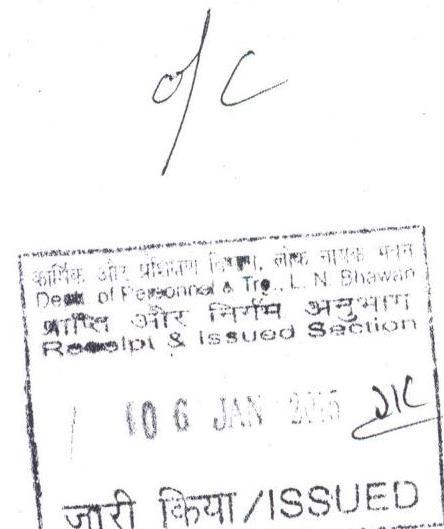 o/c
कार्मिक और प्रशिक्षण विभाग, लोक नायक भवन
Deptt. of Personnel & Trg., L. N. Bhawan
प्राप्ति और निर्गम अनुभाग
Receipt & Issued Section
06 JAN 2015
जारी किया/ISSUED